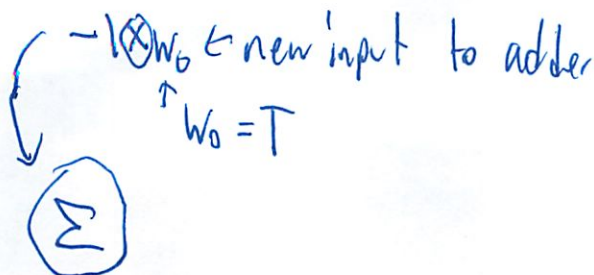 -1⊗W₀ ← new input to adder
↑
W₀ = T
Σ